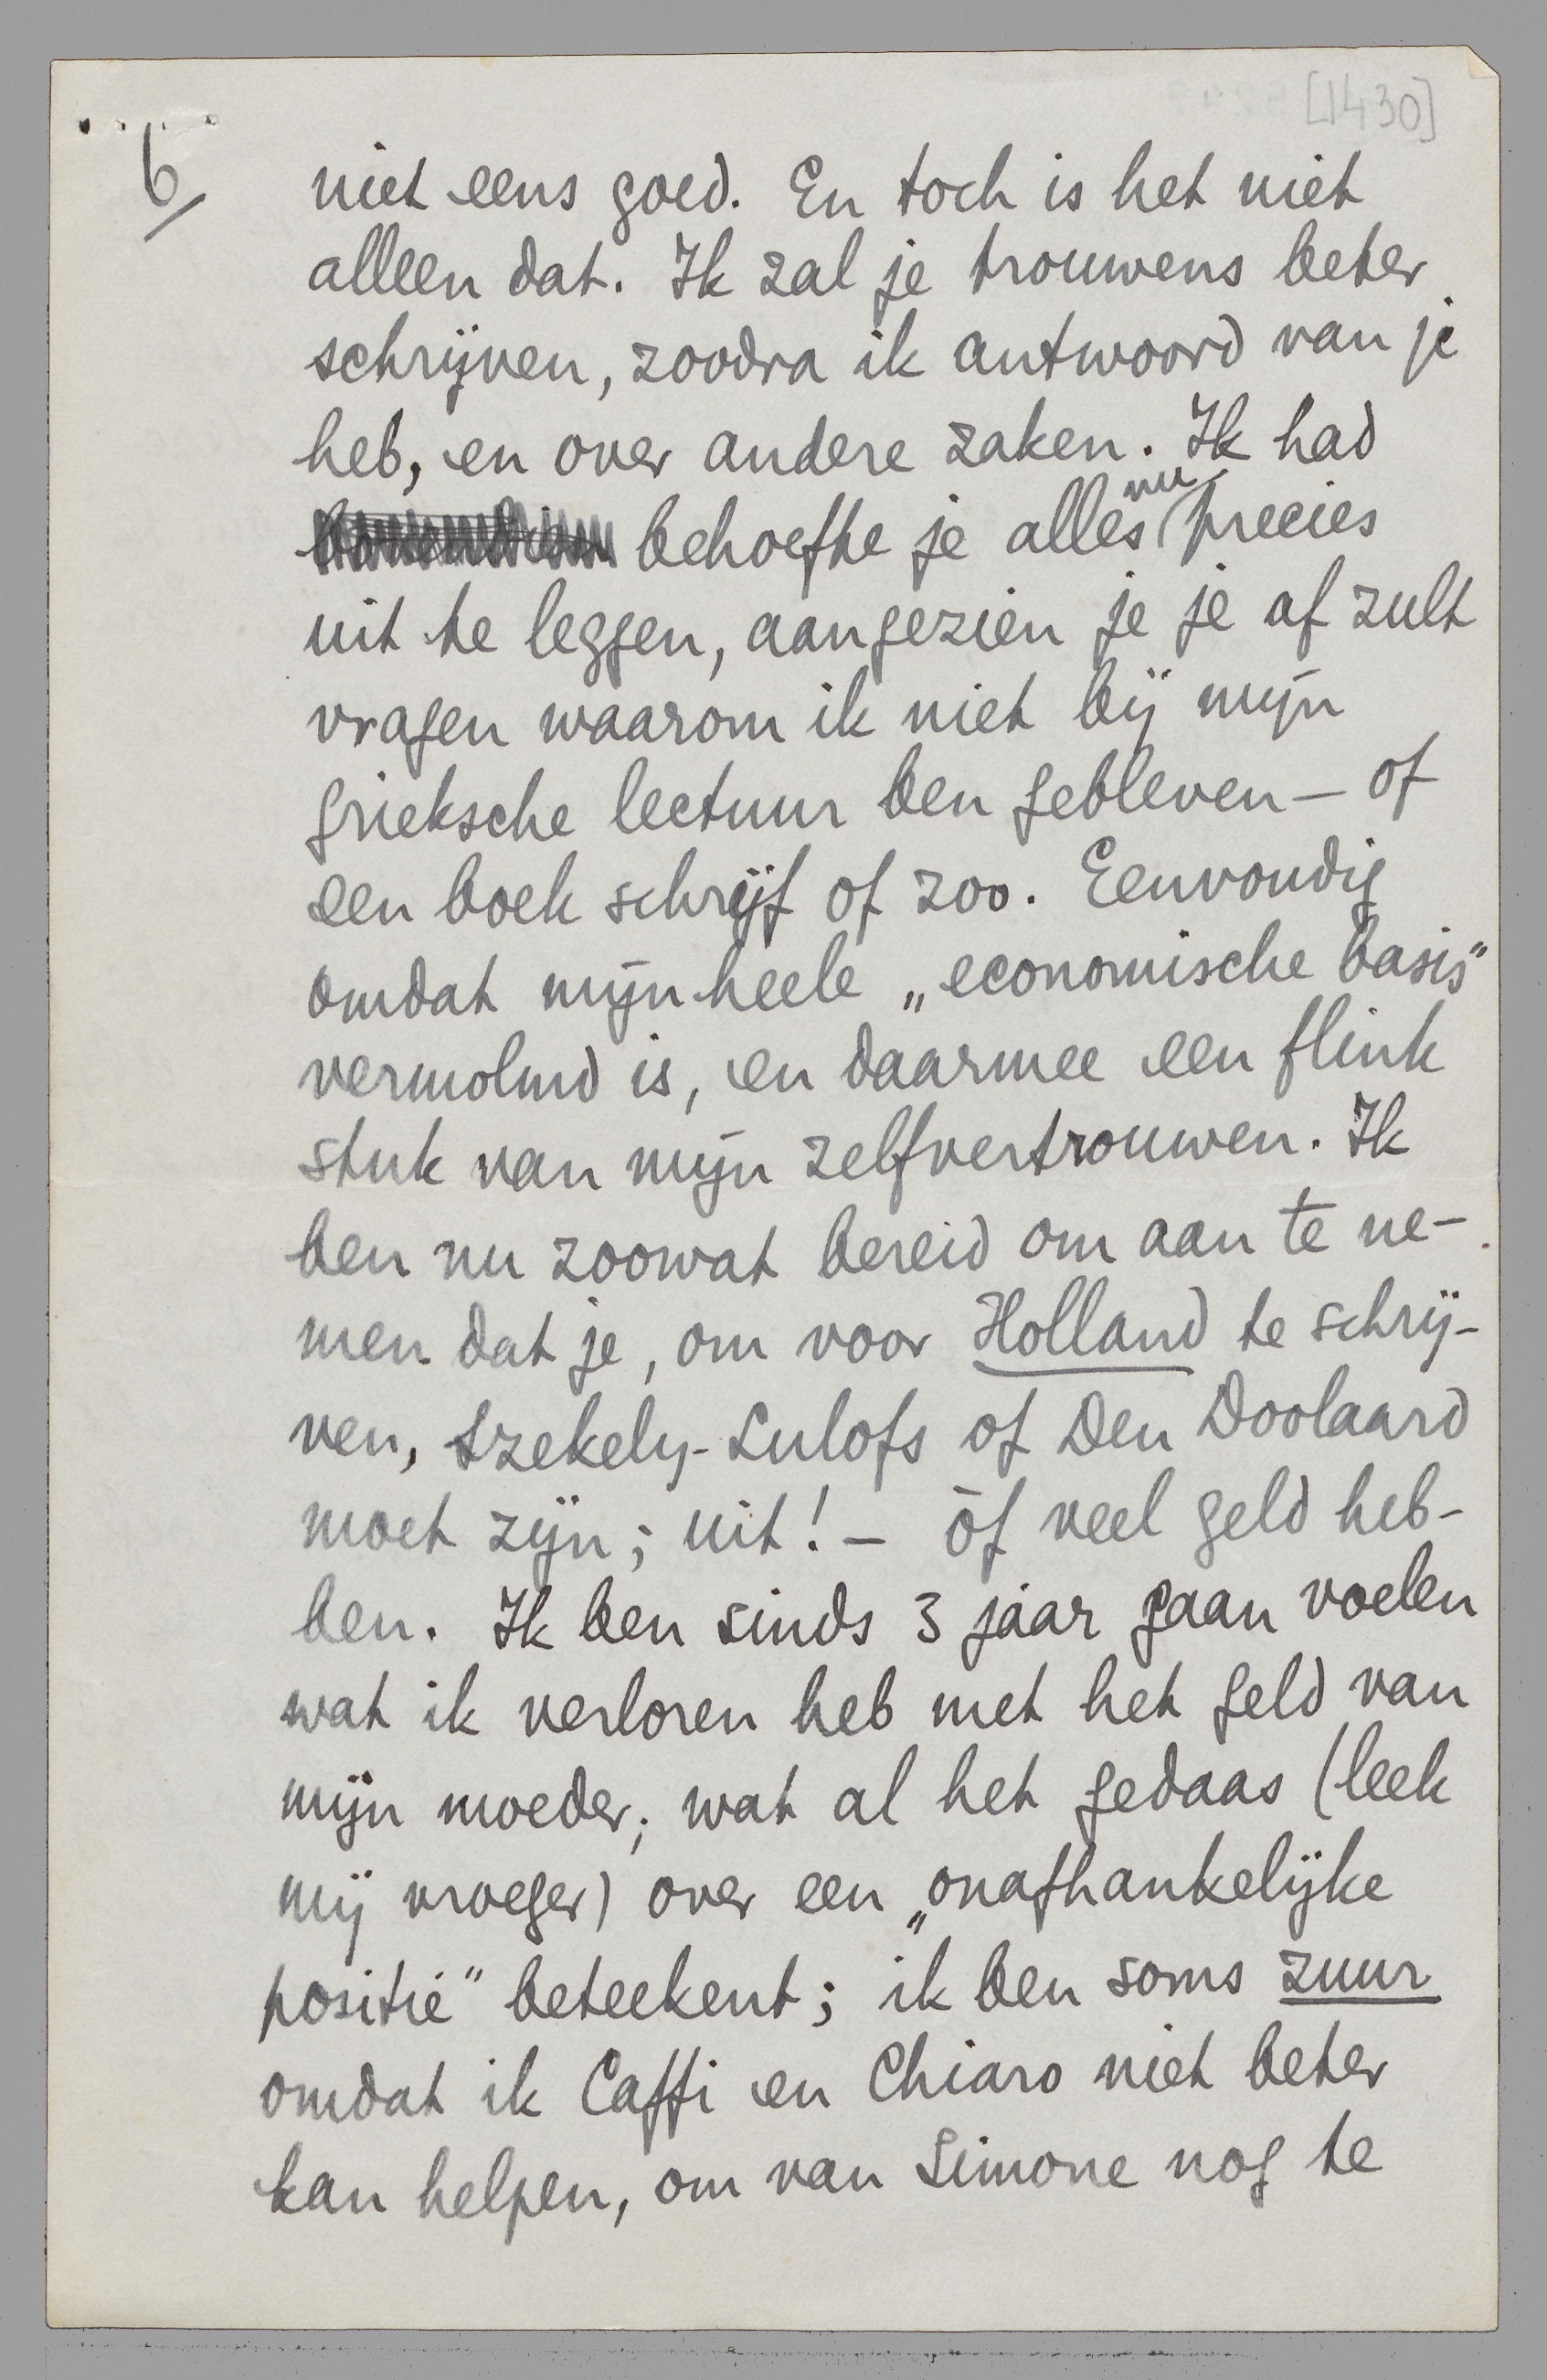 [1430]
6/
niet eens goed. En toch is het niet
alleen dat. Ik zal je trouwens beter
schrijven, zoodra ik antwoord van je
heb, en over andere zaken. Ik had
behoefte je alles nu precies
uit te leggen, aangezien je je af zult
vragen waarom ik niet bij mijn
grieksche lectuur ben gebleven — of
een boek schrijf of zoo. Eenvoudig
omdat mijn heele „economische basis"
vermolmd is, en daarmee een flink
stuk van mijn zelfvertrouwen. Ik
ben nu zoowat bereid om aan te ne-
men dat je, om voor Holland te schrij-
ven, Szekely-Lulofs of Den Doolaard
moet zijn; uit! — òf veel geld heb-
ben. Ik ben sinds 3 jaar gaan voelen
wat ik verloren heb met het geld van
mijn moeder; wat al het gedaas (leek
mij vroeger) over een „onafhankelijke
positie" beteekent; ik ben soms zuur
omdat ik Caffi en Chiaro niet beter
kan helpen, om van Simone nog te